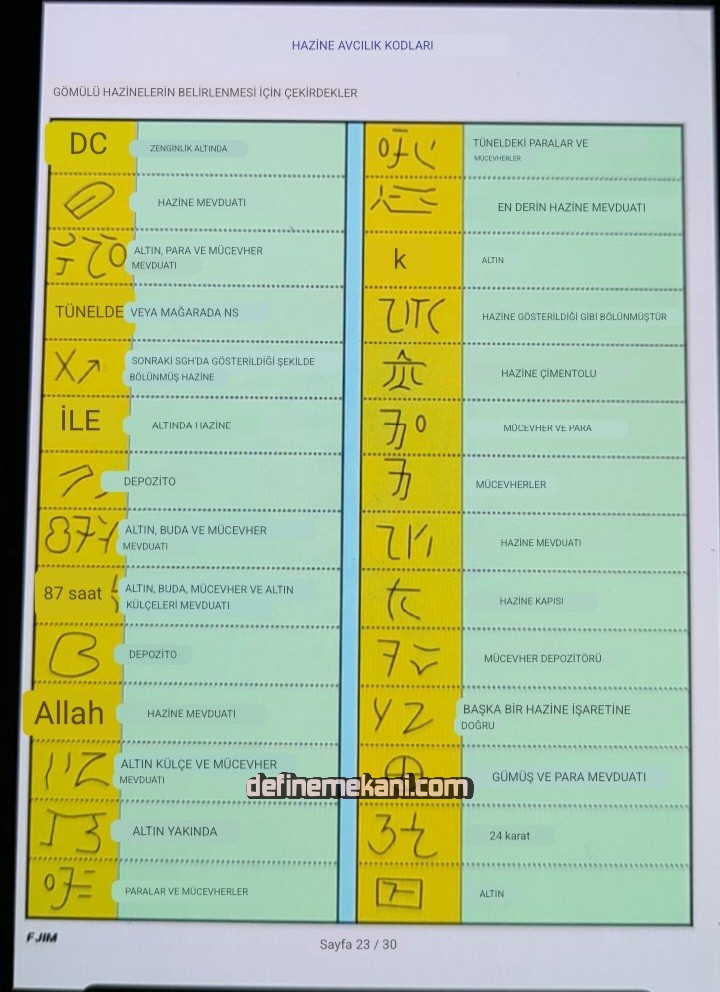 HAZİNE AVCILIK KODLARI
GÖMÜLÜ HAZİNELERİN BELİRLENMESİ İÇİN ÇEKİRDEKLER
DC
ZENGİNLİK ALTINDA
HAZİNE MEVDUATI
ALTIN, PARA VE MÜCEVHER
MEVDUATI
TÜNELDE VEYA MAĞARADA NS
SONRAKİ SGH'DA GÖSTERİLDİĞİ ŞEKİLDE
BÖLÜNMÜŞ HAZİNE
İLE
ALTINDA HAZİNE
DEPOZİTO
ALTIN, BUDA VE MÜCEVHER
MEVDUATI
87 saat
ALTIN, BUDA, MÜCEVHER VE ALTIN
KÜLÇELERİ MEVDUATI
DEPOZİTO
Allah
HAZİNE MEVDUATI
ALTIN KÜLÇE VE MÜCEVHER
MEVDUATI
ALTIN YAKINDA
PARALAR VE MÜCEVHERLER
TÜNELDEKİ PARALAR VE
MÜCEVHERLER
EN DERİN HAZİNE MEVDUATI
k
ALTIN
HAZİNE GÖSTERİLDİĞİ GİBİ BÖLÜNMÜŞTÜR
HAZİNE ÇİMENTOLU
MÜCEVHER VE PARA
MÜCEVHERLER
HAZİNE MEVDUATI
HAZİNE KAPISI
MÜCEVHER DEPOZİTÖRÜ
BAŞKA BİR HAZİNE İŞARETİNE
DOĞRU
GÜMÜŞ VE PARA MEVDUATI
24 karat
ALTIN
definemekani.com
FJIM
Sayfa 23 / 30